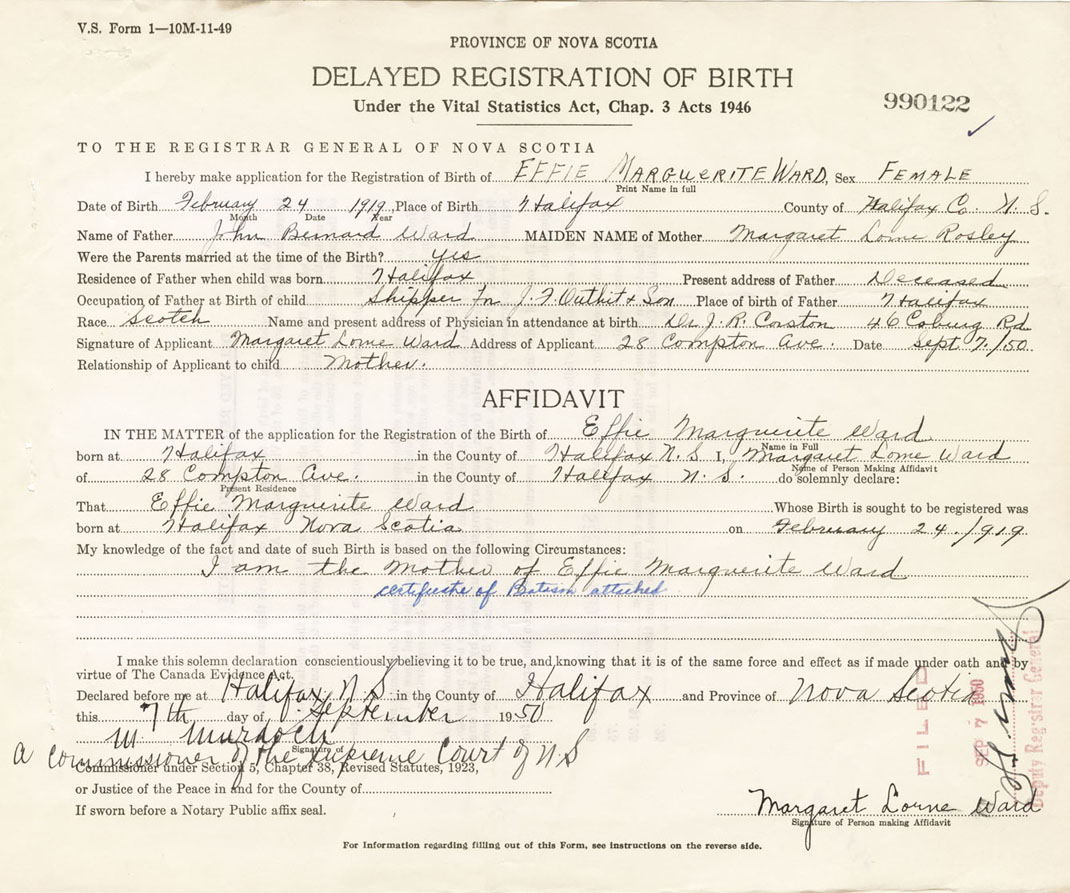 V.S. Form 1—10M-11-49
PROVINCE OF NOVA SCOTIA
DELAYED REGISTRATION OF BIRTH
Under the Vital Statistics Act, Chap. 3 Acts 1946
990122
TO THE REGISTRAR GENERAL OF NOVA SCOTIA
I hereby make application for the Registration of Birth of EFFIE MARGUERITE WARD, Sex FEMALE
Print Name in full
Date of Birth February 24 1919, Place of Birth Halifax County of Halifax Co. N.S.
Month Date Year
Name of Father John Bernard Ward MAIDEN NAME of Mother Margaret Lorne Rosley
Were the Parents married at the time of the Birth? Yes
Residence of Father when child was born Halifax Present address of Father Deceased
Occupation of Father at Birth of child Shipper for J. F. Outhit & Son Place of birth of Father Halifax
Race Scotch Name and present address of Physician in attendance at birth Dr. J. R. Corston 46 Coburg Rd.
Signature of Applicant Margaret Lorne Ward Address of Applicant 28 Compton Ave. Date Sept 7./50.
Relationship of Applicant to child Mother.
AFFIDAVIT
IN THE MATTER of the application for the Registration of the Birth of Effie Marguerite Ward
Name in Full
born at Halifax in the County of Halifax N.S I, Margaret Lorne Ward
Name of Person Making Affidavit
of 28 Compton Ave. in the County of Halifax N.S. do solemnly declare:
Present Residence
That Effie Marguerite Ward Whose Birth is sought to be registered was
born at Halifax Nova Scotia on February 24./919
My knowledge of the fact and date of such Birth is based on the following Circumstances:
I am the Mother of Effie Marguerite Ward
certificate of attached
I make this solemn declaration conscientiously believing it to be true, and knowing that it is of the same force and effect as if made under oath and by
virtue of The Canada Evidence Act.
Declared before me at Halifax N S in the County of Halifax and Province of Nova Scotia
this 7th day of September 1950
M Murdoch
Signature of
a commissioner of the supreme Court of N S
Commissioner under Section 5, Chapter 38, Revised Statutes, 1923,
or Justice of the Peace in and for the County of
If sworn before a Notary Public affix seal.
FILED
SEP 7 1950
Deputy Registrar General
Margaret Lorne Ward
Signature of Person making Affidavit
For Information regarding filling out of this Form, see instructions on the reverse side.